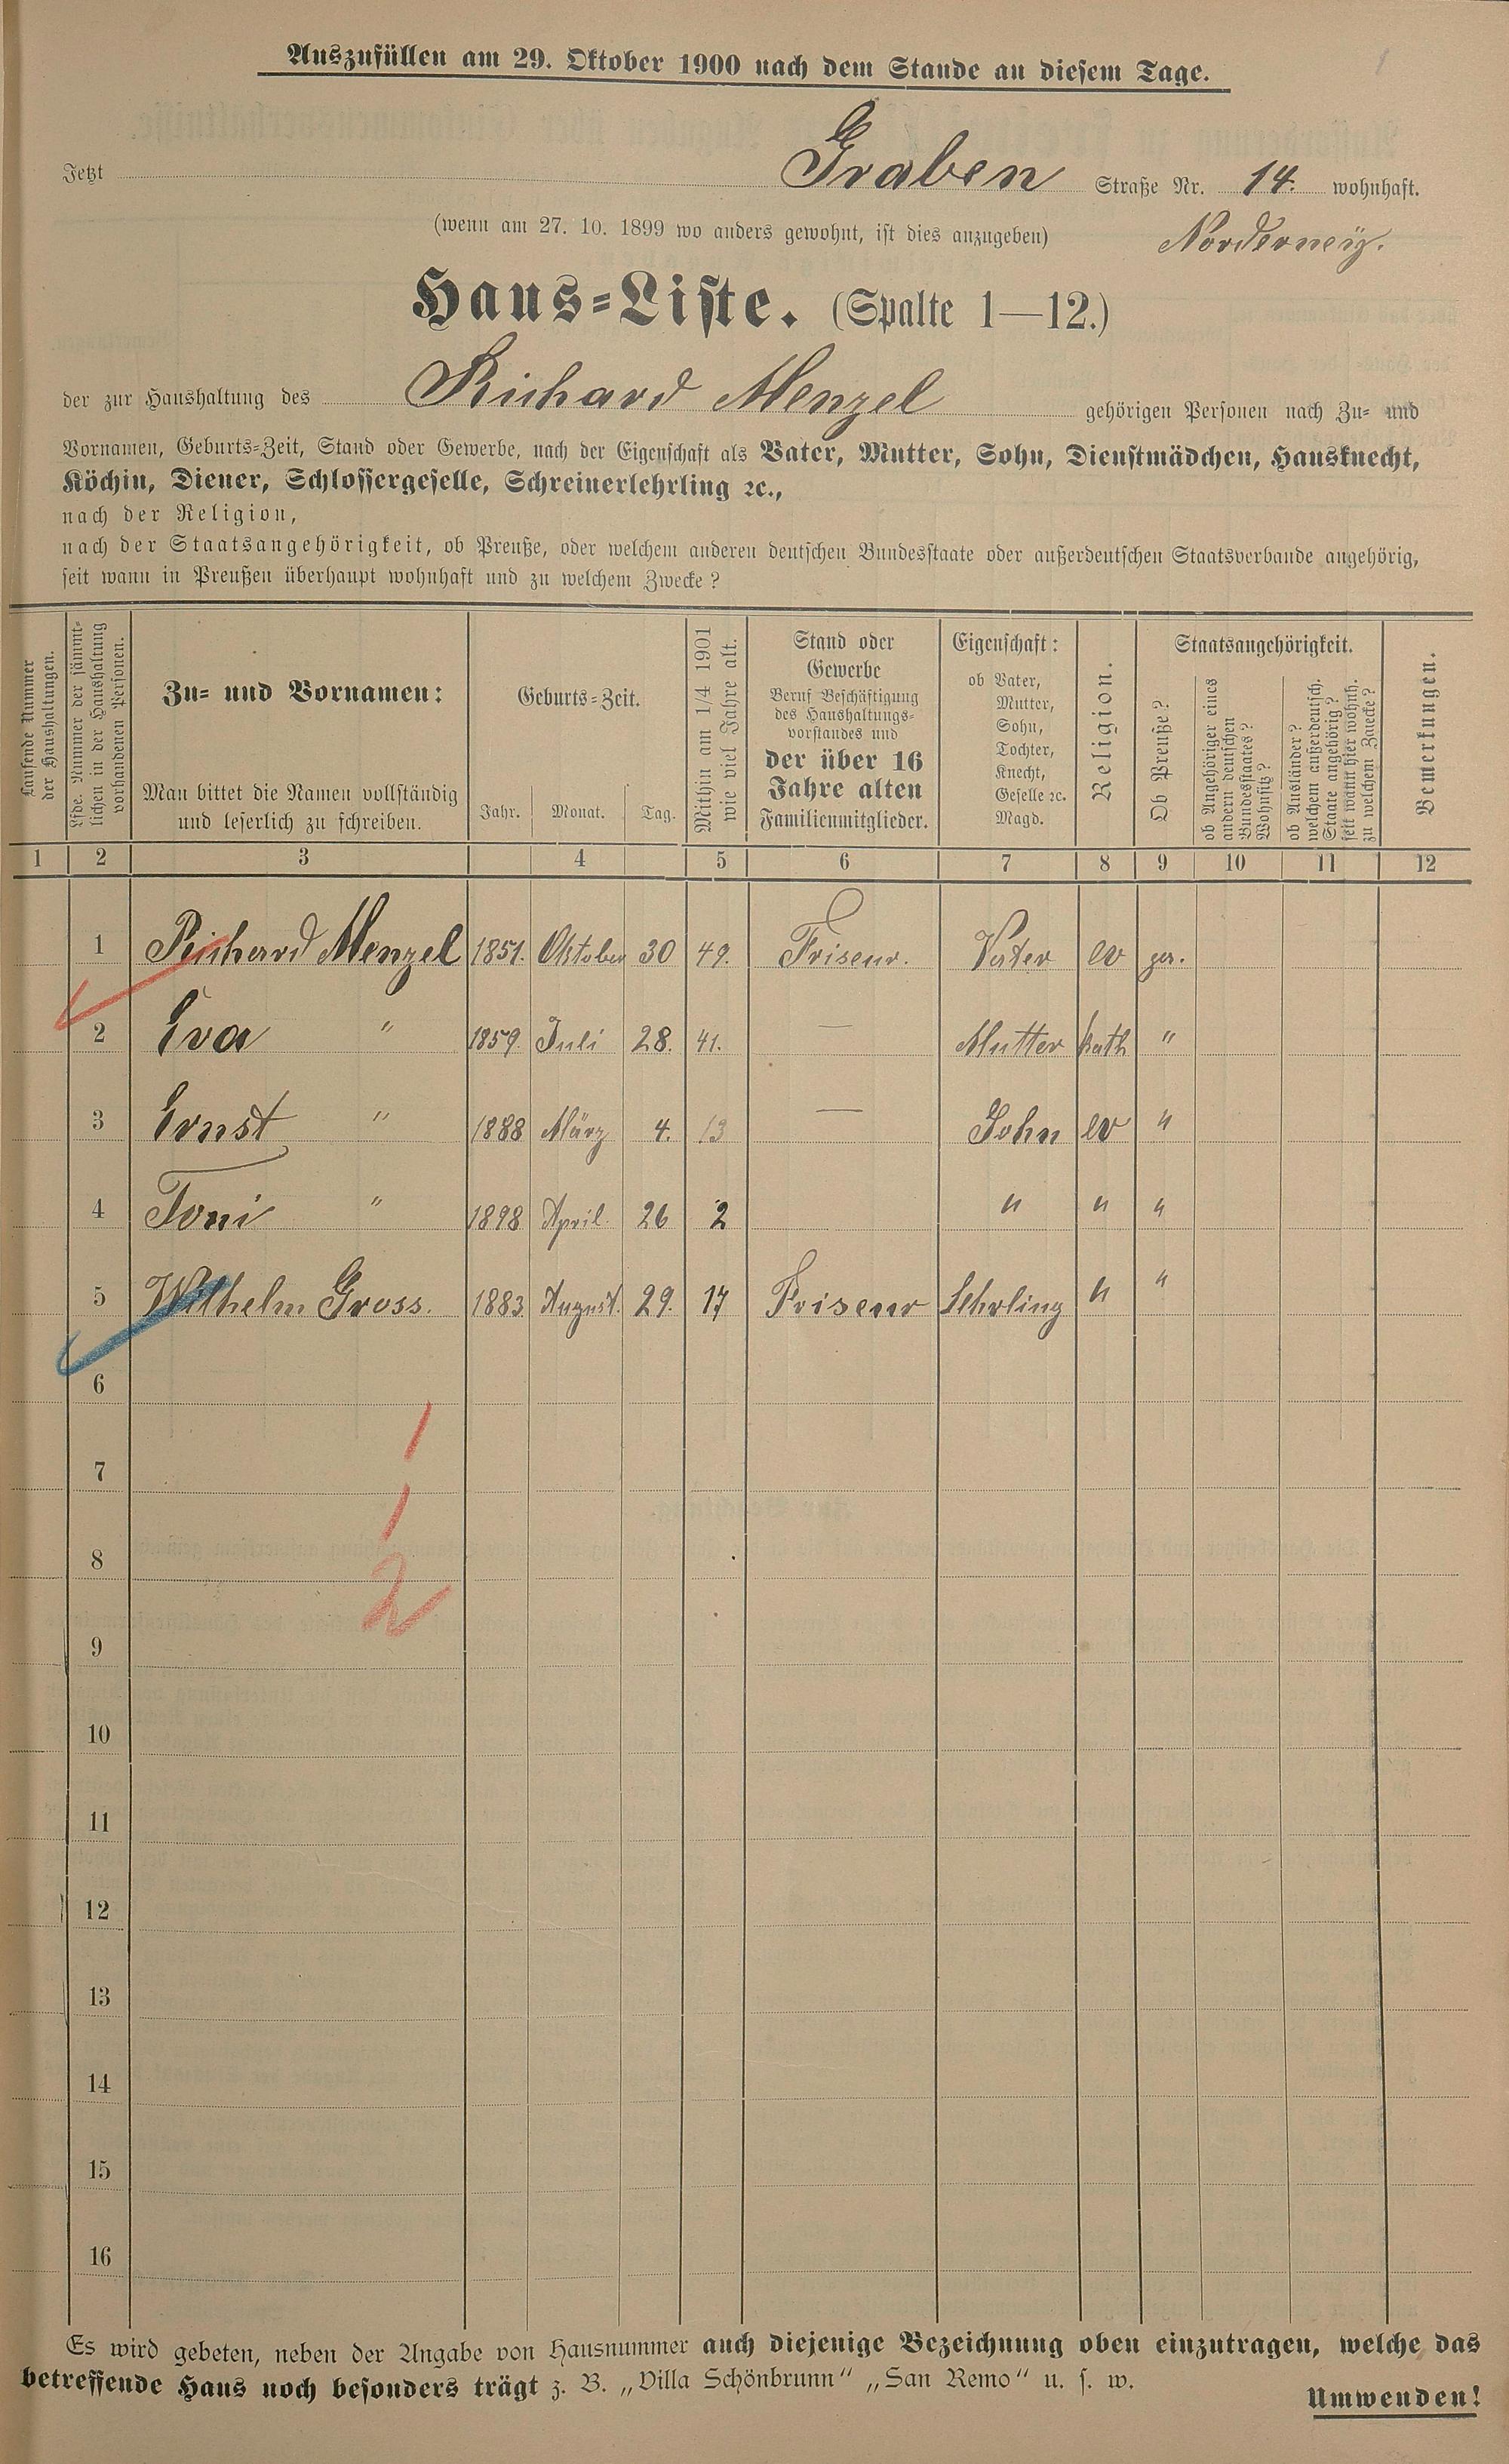 Auszufüllen am 29. Oktober 1900 nach dem Stande an diesem Tage.
Jetzt Graben Straße Nr. 14. wohnhaft.
(wenn am 27. 10. 1899 wo anders gewohnt, ist dies anzugeben) Norderney.
Haus-Liste. (Spalte 1—12.)
der zur Haushaltung des Richard Menzel gehörigen Personen nach Zu- und
Vornamen, Geburts-Zeit, Stand oder Gewerbe, nach der Eigenschaft als Vater, Mutter, Sohn, Dienstmädchen, Hausknecht,
Köchin, Diener, Schlossergeselle, Schreinerlehrling ꝛc.,
nach der Religion,
nach der Staatsangehörigkeit, ob Preuße, oder welchem anderen deutschen Bundesstaate oder außerdeutschen Staatsverbande angehörig,
seit wann in Preußen überhaupt wohnhaft und zu welchem Zwecke?
Laufende Nummer
der Haushaltungen.
Lfde. Nummer der sämmt-
lichen in der Haushaltung
vorhandenen Personen.
Zu- und Vornamen:
Man bittet die Namen vollständig
und leserlich zu schreiben.
Geburts-Zeit.
Jahr. Monat. Tag.
Mithin am 1/4 1901
wie viel Jahre alt.
Stand oder
Gewerbe
Beruf Beschäftigung
des Haushaltungs-
vorstandes und
der über 16
Jahre alten
Familienmitglieder.
Eigenschaft:
ob Vater,
Mutter,
Sohn,
Tochter,
Knecht,
Geselle ꝛc.
Magd.
Religion.
Staatsangehörigkeit.
Ob Preuße?
ob Angehöriger eines
andern deutschen
Bundesstaates?
Wohnsitz?
ob Ausländer?
welchem außerdeutsch.
Staate angehörig?
seit wann hier wohnh.
zu welchem Zwecke?
Bemerkungen.
1 2 3 4 5 6 7 8 9 10 11 12
1 Richard Menzel 1851. Oktober 30 49. Friseur. Vater ev
2 Eva " 1859. Juli 28. 41. — Mutter kath "
3 Ernst " 1888 März 4. 13 — Sohn ev "
4 Toni " 1898 April. 26 2 " " "
5 Wilhelm Gross. 1883 August. 29. 17 Friseur Lehrling " "
6
7
8
2
9
10
11
12
13
14
15
16
Es wird gebeten, neben der Angabe von Hausnummer auch diejenige Bezeichnung oben einzutragen, welche das
betreffende Haus noch besonders trägt z. B. „Villa Schönbrunn“ „San Remo“ u. s. w.
Umwenden!